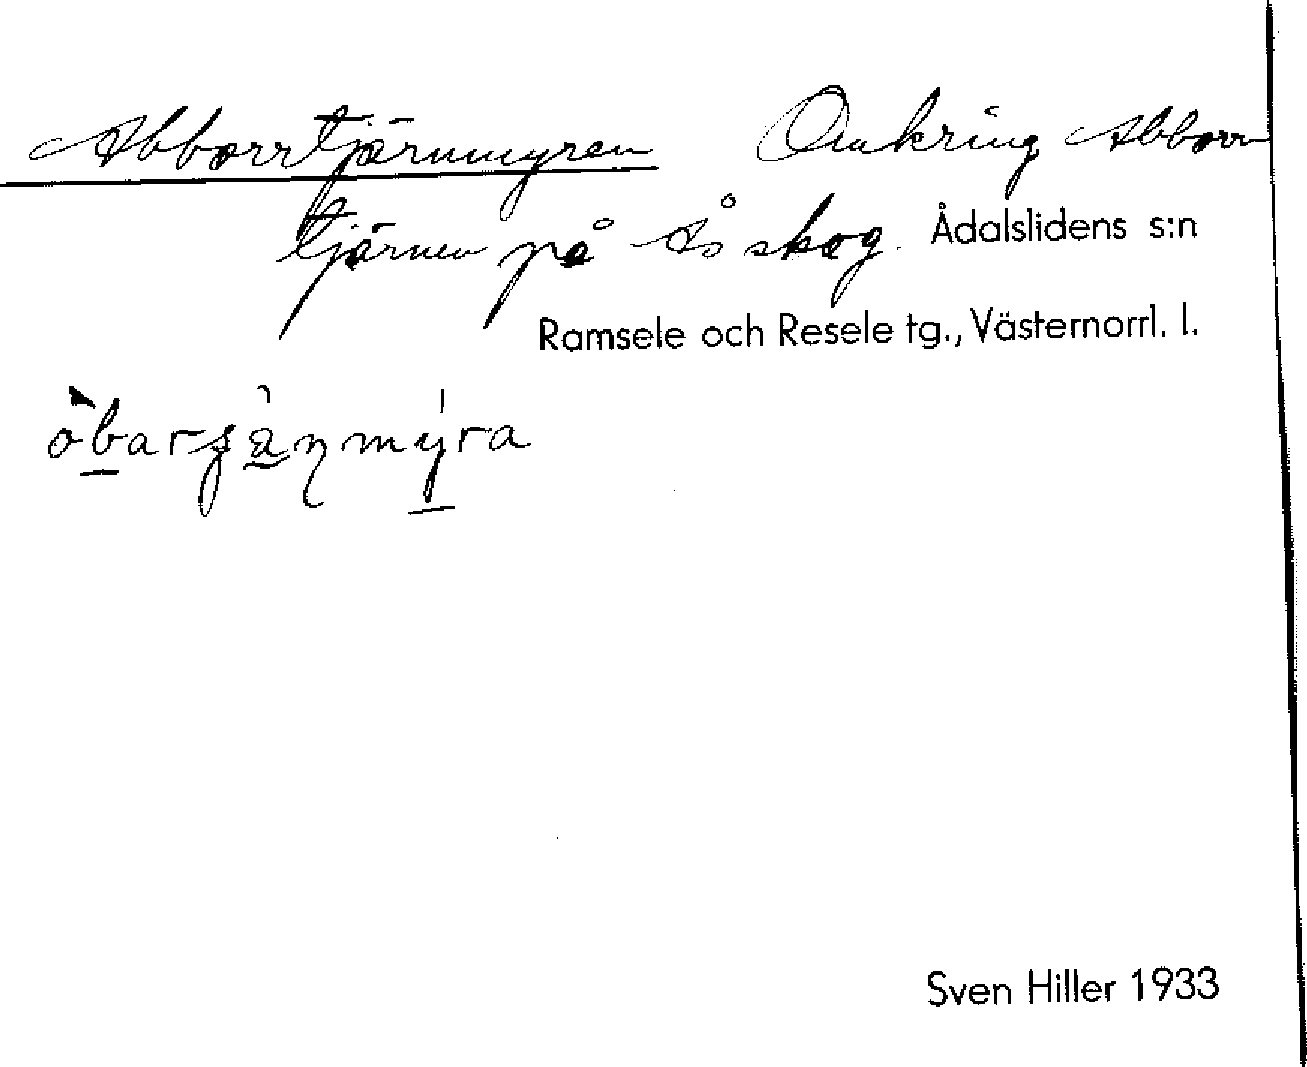 Abborrtjärnmyren Omkring Abborr
tjärnen på Ås skog. Ådalslidens s:n
Ramsele och Resele tg., Västernorrl. l.
Sven Hiller 1933